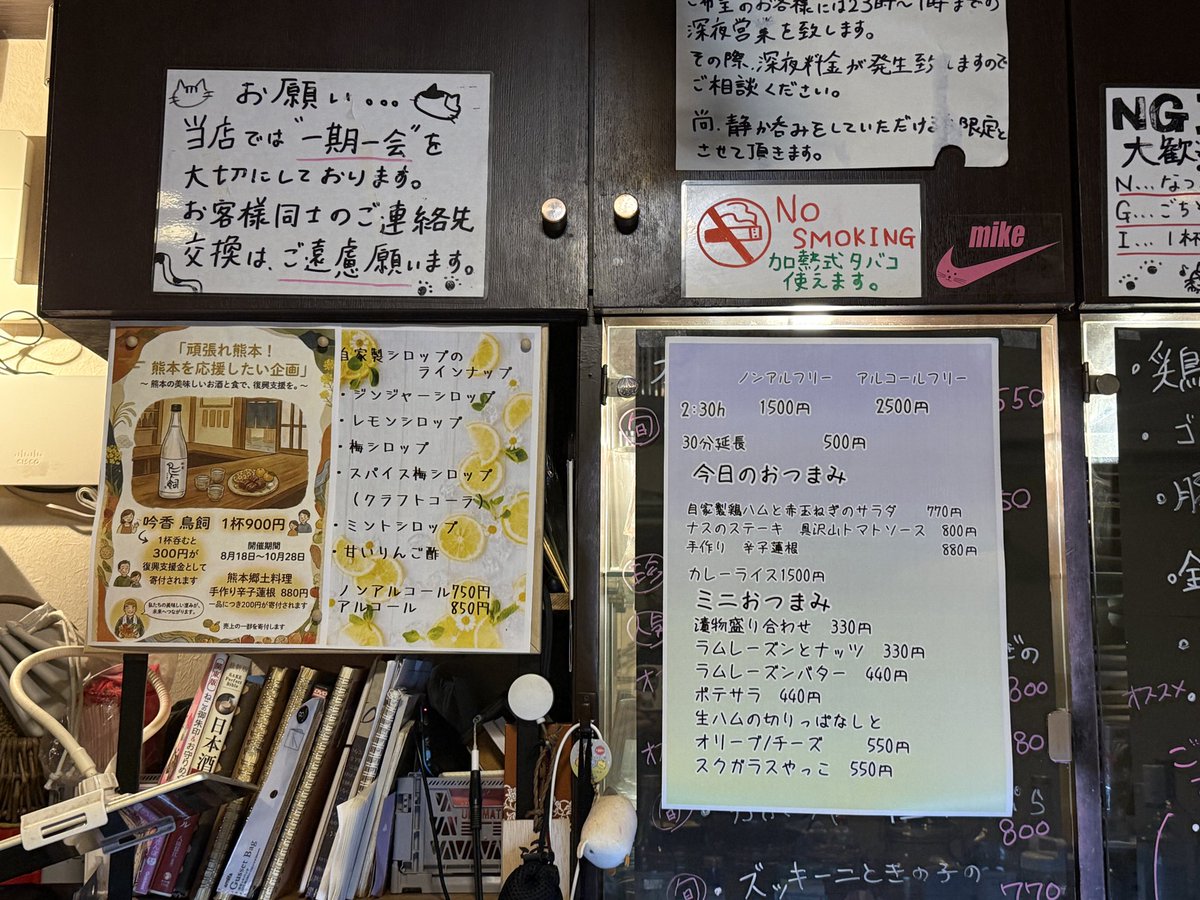 お願い...
当店では"一期一会"を
大切にしております。
お客様同士のご連絡先
交換は、ご遠慮願います。
ご希望のお客様には23時〜1時までの
深夜営業を致します。
その際、深夜料金が発生致しますので
ご相談ください。
尚、静か呑みをしていただける 限定と
させて頂きます。
No
SMOKING
加熱式タバコ
使えます。
mike
NG
大歓
N...なつ
G...ごち
I...1杯
「頑張れ熊本!
熊本を応援したい企画」
〜熊本の美味しいお酒と食で、復興支援を。〜
吟香 鳥飼 1杯900円
1杯呑むと
300円が
復興支援金として
寄付されます
開催期間
8月18日〜10月28日
熊本郷土料理
手作り辛子蓮根 880円
一品につき200円が寄付されます
私たちの美味しい重みが、
未来へつながります。
売上の一部を寄付します
自家製シロップの
ラインナップ
・ジンジャーシロップ
・レモンシロップ
・梅シロップ
・スパイス梅シロップ
(クラフトコーラ)
・ミントシロップ
・甘いりんご酢
ノンアルコール750円
アルコール 850円
ノンアルフリー アルコールフリー
2:30h 1500円 2500円
30分延長 500円
今日のおつまみ
自家製鶏ハムと赤玉ねぎのサラダ 770円
ナスのステーキ 具沢山トマトソース 800円
手作り 辛子蓮根 880円
カレーライス1500円
ミニおつまみ
漬物盛り合わせ 330円
ラムレーズンとナッツ 330円
ラムレーズンバター 440円
ポテサラ 440円
生ハムの切りっぱなしと
オリーブ/チーズ 550円
スクガラスやっこ 550円
旬
550
50
ぎの
800
80
ぱら
800
旬・ズッキーニときの子の
770
・鶏
・ゴ
・豚
オススメ
CISCO
日本酒
Gusset Bag